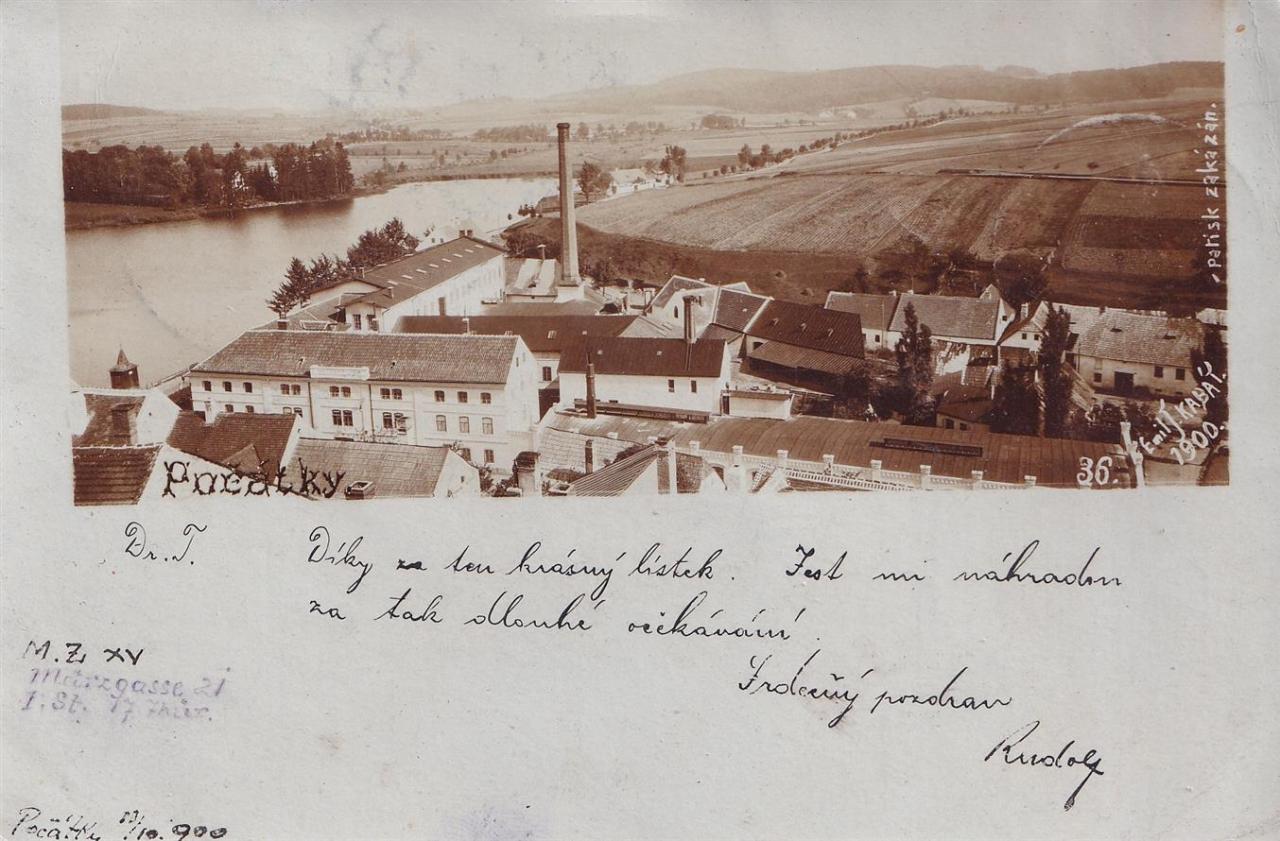 patisk zakázán.
Emil Kabát.
1900.
36.
Počátky
Dr. T.
Díky za ten krásný lístek. Jest mi náhradou
za tak dlouhé očekávání.
Srdečný pozdrav
Rudolf
M. Z. XV
Märzgasse 21
I. St. 17 Thür.
Počátky /10. 900